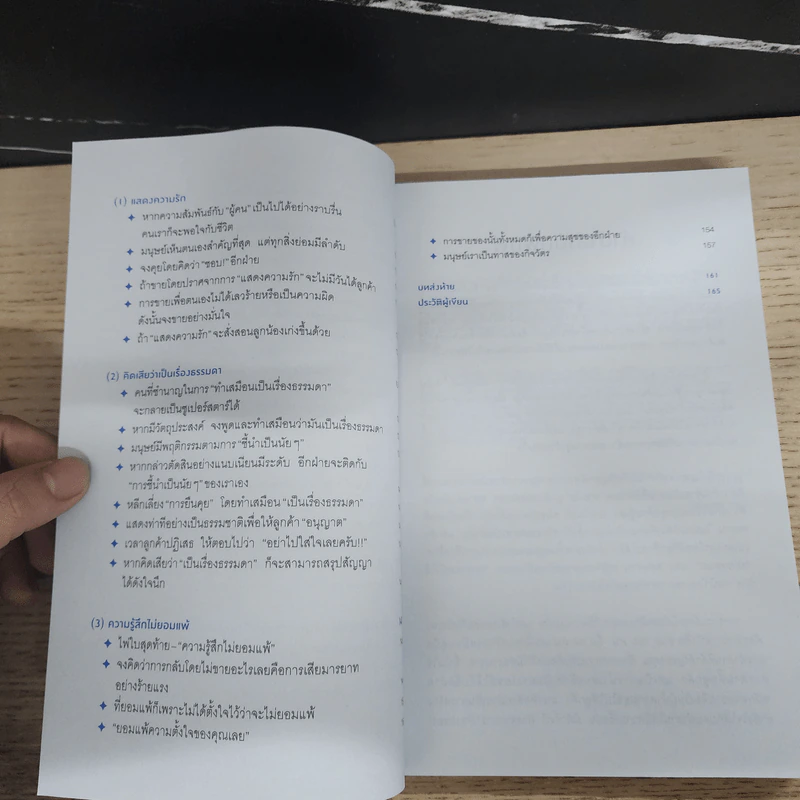 (1) แสดงความรัก
✦ หากความสัมพันธ์กับ "ผู้คน" เป็นไปได้อย่างราบรื่น
คนเราก็จะพอใจกับชีวิต
✦ มนุษย์เห็นตนเองสำคัญที่สุด แต่ทุกสิ่งย่อมมีลำดับ
✦ จงคุยโดยคิดว่า "ชอบ!" อีกฝ่าย
✦ ถ้าขายโดยปราศจากการ "แสดงความรัก" จะไม่มีวันได้ลูกค้า
✦ การขายเพื่อตนเองไม่ได้เลวร้ายหรือเป็นความผิด
ดังนั้นจงขายอย่างมั่นใจ
✦ ถ้า "แสดงความรัก" จะสั่งสอนลูกน้องเก่งขึ้นด้วย
(2) คิดเสียว่าเป็นเรื่องธรรมดา
✦ คนที่ชำนาญในการ "ทำเสมือนเป็นเรื่องธรรมดา"
จะกลายเป็นซูเปอร์สตาร์ได้
✦ หากมีวัตถุประสงค์ จงพูดและทำเสมือนว่ามันเป็นเรื่องธรรมดา
✦ มนุษย์มีพฤติกรรมตามการ "ชี้นำเป็นนัยๆ"
✦ หากกล่าวตัดสินอย่างแนบเนียนมีระดับ อีกฝ่ายจะติดกับ
"การชี้นำเป็นนัยๆ" ของเราเอง
✦ หลีกเลี่ยง "การยืนคุย" โดยทำเสมือน "เป็นเรื่องธรรมดา"
✦ แสดงท่าทีอย่างเป็นธรรมชาติเพื่อให้ลูกค้า "อนุญาต"
✦ เวลาลูกค้าปฏิเสธ ให้ตอบไปว่า "อย่าไปใส่ใจเลยครับ!!"
✦ หากคิดเสียว่า "เป็นเรื่องธรรมดา" ก็จะสามารถสรุปสัญญา
ได้ดังใจนึก
(3) ความรู้สึกไม่ยอมแพ้
✦ ไพ่ใบสุดท้าย–"ความรู้สึกไม่ยอมแพ้"
✦ จงคิดว่าการกลับโดยไม่ขายอะไรเลยคือการเสียมารยาท
อย่างร้ายแรง
✦ ที่ยอมแพ้ก็เพราะไม่ได้ตั้งใจไว้ว่าจะไม่ยอมแพ้
✦ "ยอมแพ้ความตั้งใจของคุณเลย"
✦ การขายของนั้นทั้งหมดก็เพื่อความสุขของอีกฝ่าย 154
✦ มนุษย์เราเป็นทาสของกิจวัตร 157
บทส่งท้าย 161
ประวัติผู้เขียน 165